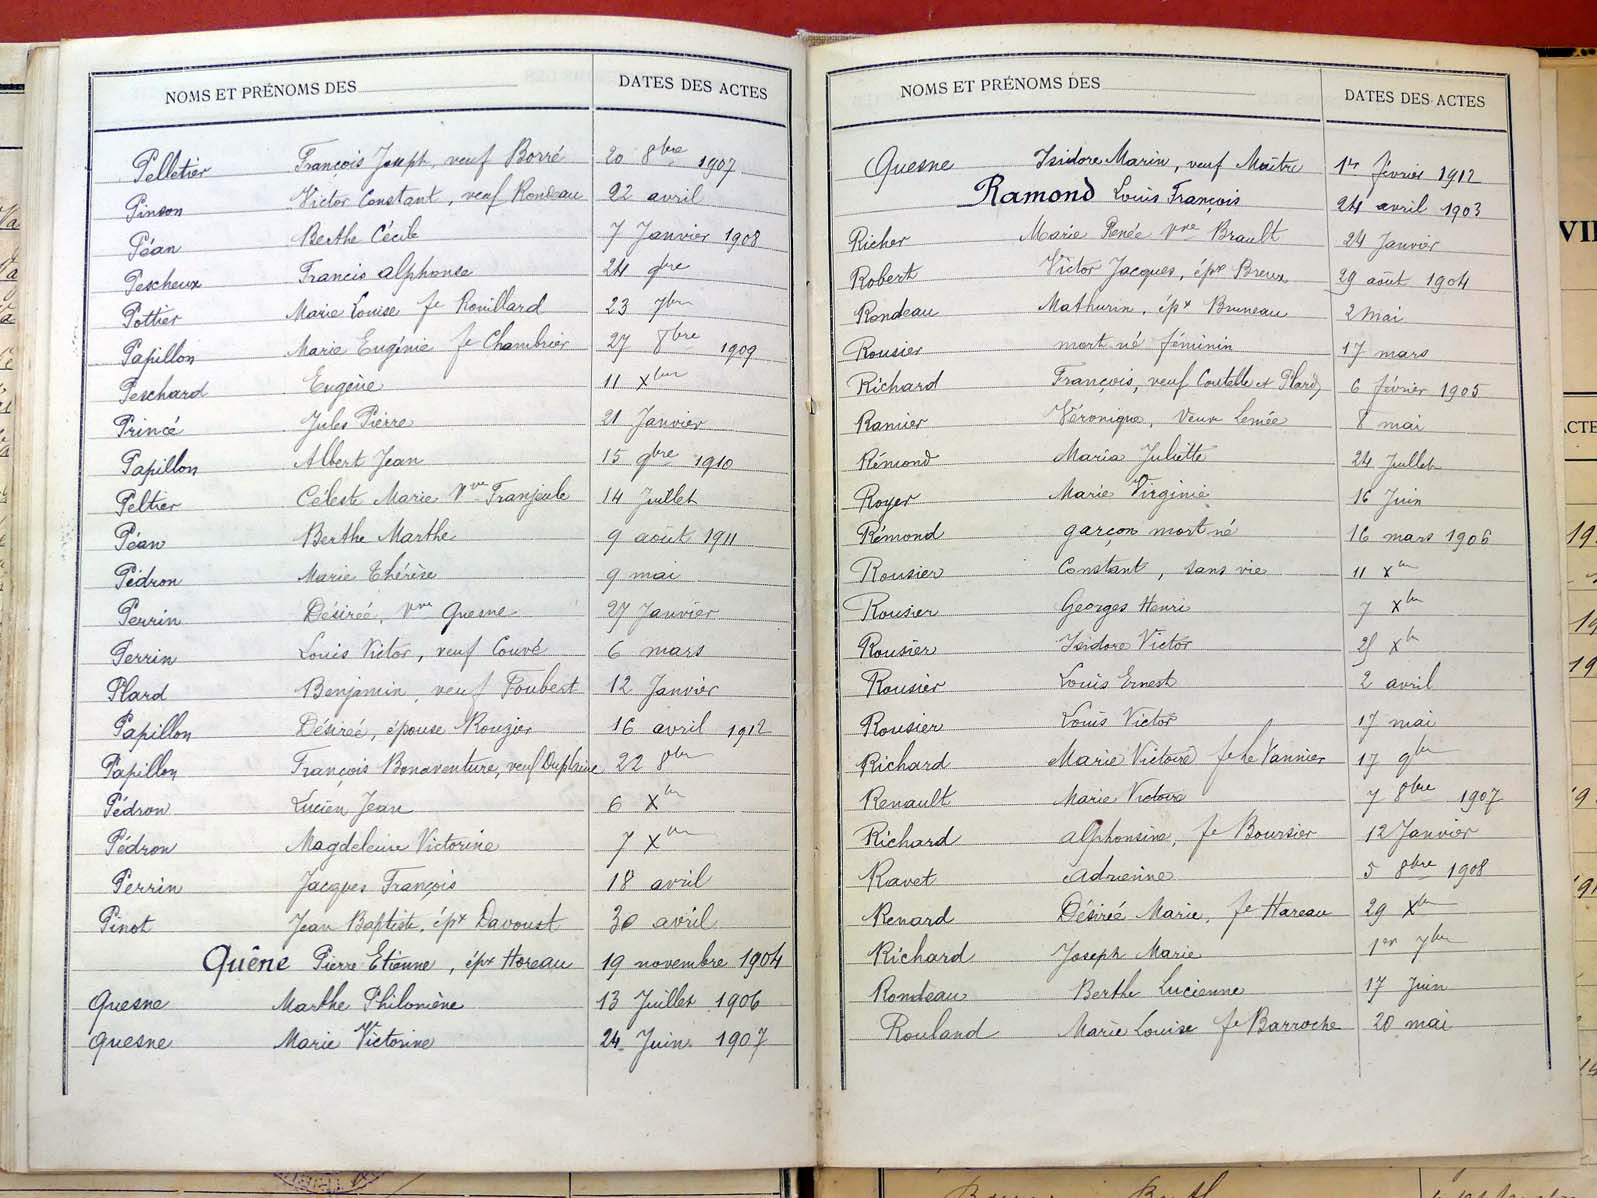 NOMS ET PRÉNOMS DES DATES DES ACTES
Pelletier François Joseph, veuf Borré 20 8bre 1907
Pinson Victor Constant, veuf Rondeau 22 avril
Péan Berthe Cécile 7 Janvier 1908
Pescheux Francis alphonse 24 9bre
Pottier Marie Louise fe Rouillard 23 7bre
Papillon Marie Eugénie fe Chambrier 27 8bre 1909
Peschard Eugène 11 Xbre
Princé Jules Pierre 21 Janvier
Papillon Albert Jean 15 9bre 1910
Peltier Céleste Marie Vve Franjeule 14 Juillet
Péan Berthe Marthe 9 août 1911
Pédron Marie Thérèse 9 mai
Perrin Désirée, vve Quesne 27 Janvier
Perrin Louis Victor, veuf Couvé 6 mars
Plard Benjamin, veuf Foubert 12 Janvier
Papillon Désirée, épouse Rouzier 16 avril 1912
Papillon François Bonaventure, veuf 22 8bre
Pédron Lucien Jean 6 Xbre
Pédron Magdeleine Victorine 7 Xbre
Perrin Jacques François 18 avril
Pinot Jean Baptiste, épx Davoust 30 avril
Quêne Pierre Etienne, épx Horeau 19 novembre 1904
Quesne Marthe Philomène 13 Juillet 1906
Quesne Marie Victorine 24 Juin 1907
NOMS ET PRÉNOMS DES DATES DES ACTES
Quesne Isidore Marin, veuf Maître 1er février 1912
Ramond Louis François 24 avril 1903
Richer Marie Renée vve Brault 24 Janvier
Robert Victor Jacques, épx Breux 29 août 1904
Rondeau Mathurin, épx Bruneau 2 mai
Rousier mort né féminin 17 mars
Richard François, veuf Coutelle et Plard 6 février 1905
Ramier Véronique, Veuve Lemée 8 mai
Rémond Maria Juliette 24 Juillet
Royer Marie Virginie 16 Juin
Rémond garçon mort né 16 mars 1906
Rousier Constant, sans vie 11 Xbre
Rousier Georges Henri 7 Xbre
Rousier Isidore Victor Xbre
Rousier Louis Ernest 2 avril
Rousier Louis Victor 17 mai
Richard Marie Victoire fe Le Vannier 17 9bre
Renault Marie Victoire 7 8bre 1907
Richard alphonsine, fe Boursier 12 Janvier
Ravet Adrienne 5 8bre 1908
Renard Désirée Marie, fe Hareau 29 Xbre
Richard Joseph Marie 1er 7bre
Rondeau Berthe Lucienne 17 Juin
Rouland Marie Louise fe Barroche 20 mai